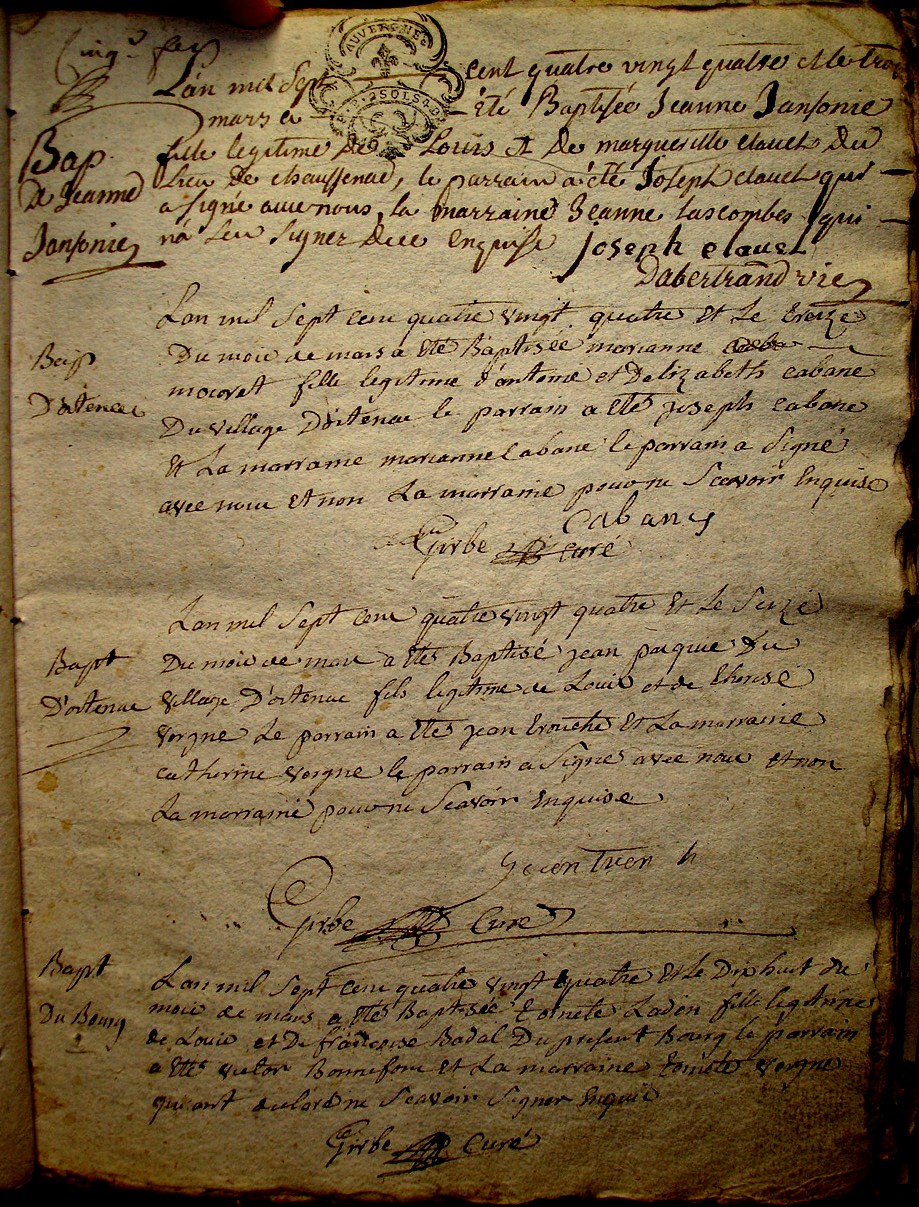 Cinq.e feu
AUVERGNE
L'an mil sept cent quatre vingt quatre et le
mars a été Baptisée Jeanne Jansonie
Bap fille legitime de Louis et de margueritte clauet du
De Jeanne lieu De chaussenac, le parrain a été Joseph clauet qui
a signé avec nous, la marraine Jeanne Lascombes qui
Jansonie na seu signer de ce enquise joseph clauet
Dabertrand vic
Lan mil sept cens quatre vingt quatre et Le treize
Bap Du mois de mars a eté Baptisée marianne
mouret fille legitime d'antoine et Delizabeth cabane
D'ostenac Du village D'ostenac le parrain a eté joseph cabane
et La marraine marianne Cabane le parrain a signé
avec nous et non La marraine pour ne scavoir Enquise
Cabanes
Girbe curé
Lan mil sept cens quatre vingt quatre et Le seize
Bapt Du mois de mars a eté Baptisé jean paquie Du
D'ostenac village D'ostenac fils legitime de Louis et de therese
vergne Le parrain a eté jean trouche et La marraine
catherine vergne le parrain a signé avec nous et non
La marraine pour ne scavoir Enquise
Girbe Curé
Bapt Lan mil sept cens quatre vingt quatre et Le Dixhuit du
Du Bourg mois de mars a eté Baptisée toinete Laden fille legitime
de Louis et De françoise Badal Du present Bourg le parrain
a eté victor Bonnefons et La marraine toinete vergne
qui ont declaré ne scavoir signer Enquis
Girbe Curé